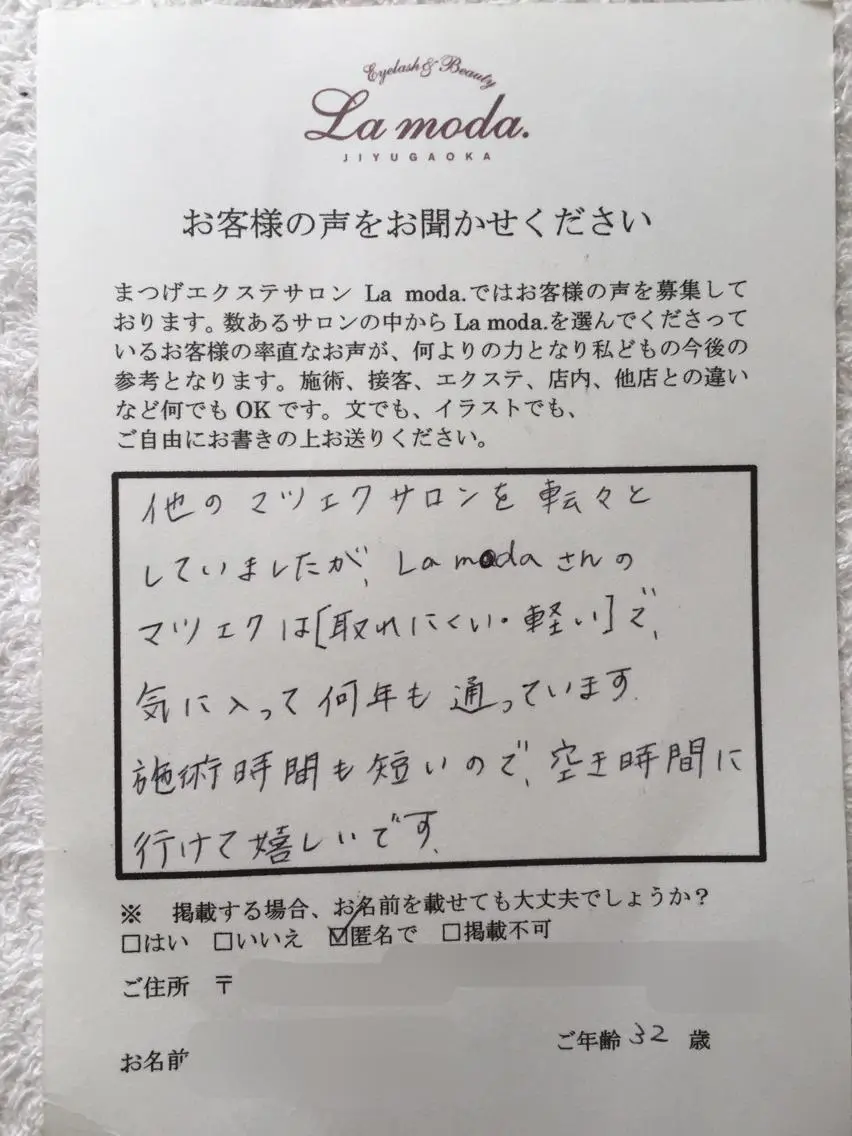 Eyelash & Beauty
La moda.
JIYUGAOKA
お客様の声をお聞かせください
まつげエクステサロン La moda.ではお客様の声を募集して
おります。数あるサロンの中から La moda.を選んでくださって
いるお客様の率直なお声が、何よりの力となり私どもの今後の
参考となります。施術、接客、エクステ、店内、他店との違い
など何でも OK です。文でも、イラストでも、
ご自由にお書きの上お送りください。
他のマツエクサロンを転々と
していましたが、La modaさんの
マツエクは[取れにくい・軽い]で、
気に入って何年も通っています.
施術時間も短いので、空き時間に
行けて嬉しいです.
※ 掲載する場合、お名前を載せても大丈夫でしょうか？
□はい □いいえ ☑匿名で □掲載不可
ご住所 〒
ご年齢 32 歳
お名前